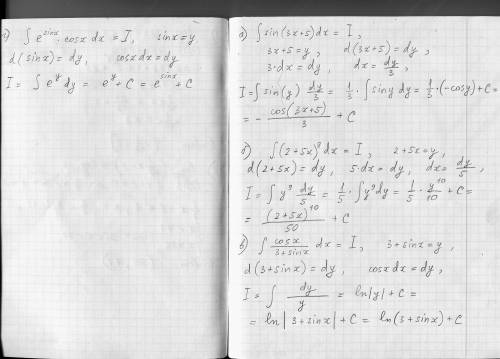 г) ∫ e^sinx · cosx dx = I, sinx = y
d(sinx) = dy, cosx dx = dy
I = ∫ e^y dy = e^y + C = e^sinx + C
а) ∫ sin(3x+5) dx = I,
3x+5 = y, d(3x+5) = dy,
3·dx = dy, dx = dy/3,
I = ∫ sin(y) dy/3 = 1/3 · ∫ siny dy = 1/3 · (-cosy) + C =
= - cos(3x+5)/3 + C
б) ∫ (2+5x)^9 dx = I, 2+5x = y,
d(2+5x) = dy, 5·dx = dy, dx = dy/5,
I = ∫ y^9 dy/5 = 1/5 · ∫ y^9 dy = 1/5 · y^10/10 + C =
= (2+5x)^10/50 + C
в) ∫ cosx/(3+sinx) dx = I, 3+sinx = y,
d(3+sinx) = dy, cosx dx = dy,
I = ∫ dy/y = ln|y| + C =
= ln|3+sinx| + C = ln(3+sinx) + C